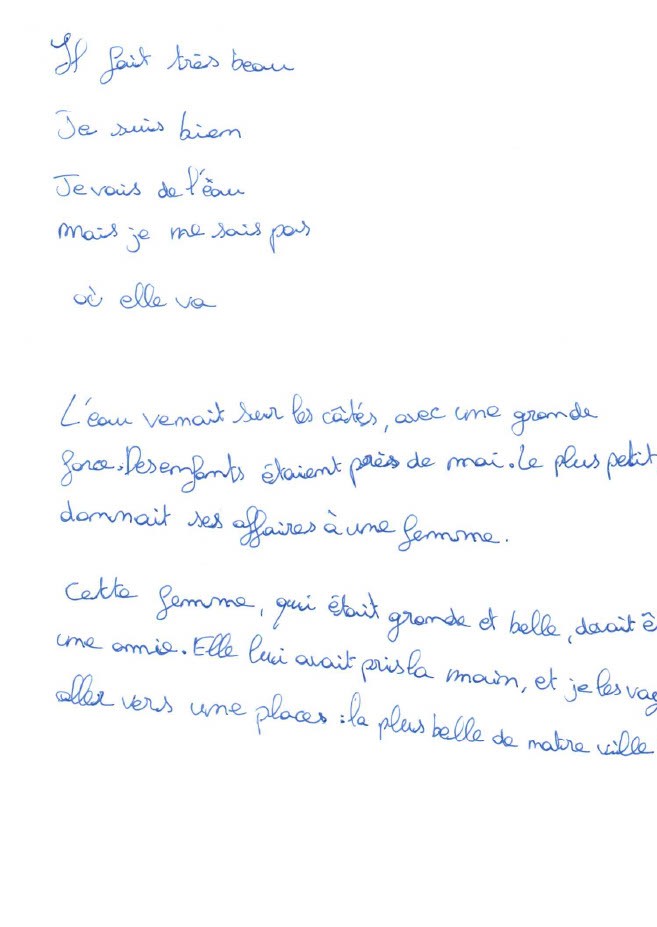 Il fait très beau
Je suis bien
Je vais de l'êau
mais je ne sais pas
où elle va
L'eau venait sur les câtés, avec une grande
force. Des enfants étaient près de moi. Le plus petit
donnait ses affaires à une femme.
Cette femme, qui était grande et belle, devait ê
une amie. Elle lui avait pris la main, et je les voy
aller vers une places : la plus belle de notre ville